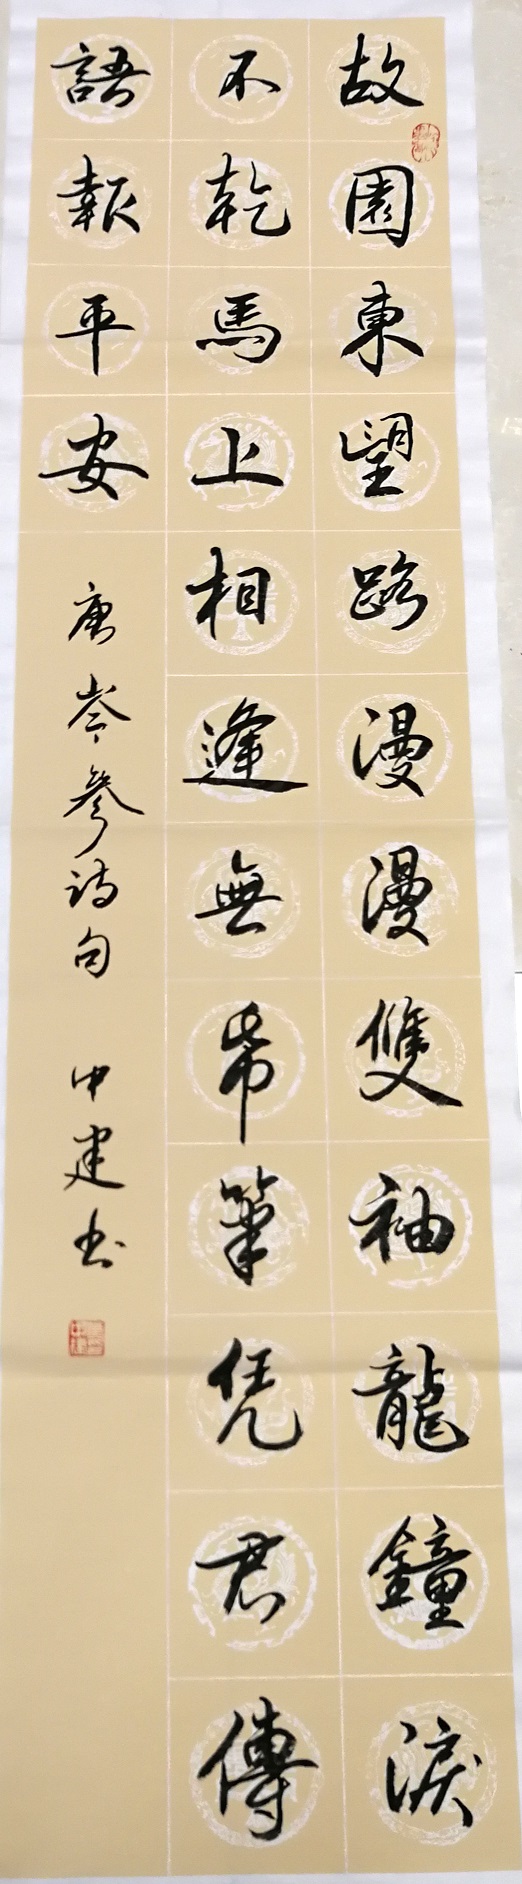 故園東望路漫漫雙袖龍鐘淚
不乾馬上相逢無帋筆凭君傳
語報平安
唐岑參詩句 中建书